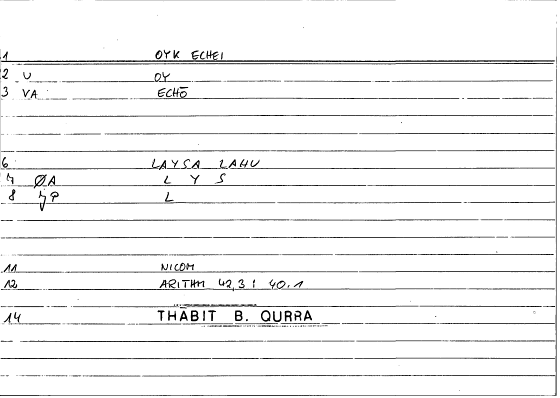 1 OYK ECHEI
2 U OY
3 VA ECHŌ
6 LAYSA LAHU
7 ØA L Y S
8 JP L
11 NICOM
12 ARITHM 42,3 : 40.1
14 THĀBIT B. QURRA